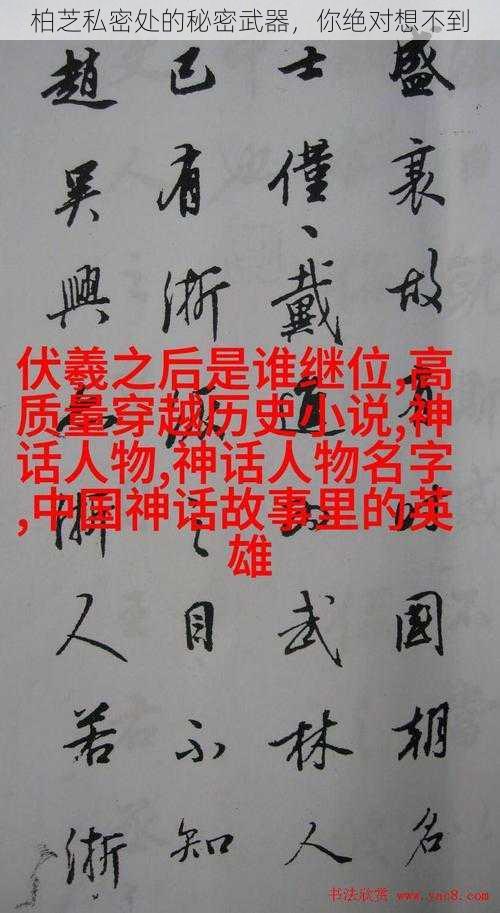 柏芝私密处的秘密武器，你绝对想不到
盛衰故有時國朝名
士僅、戴進為武林人
已有浙派之目不知
趙吳興亦浙人若浙
伏羲之后是谁继位,高
质量穿越历史小说,神
话人物,神话人物名字
,中国神话故事里的英
雄
书法欣赏 www.yac8.com